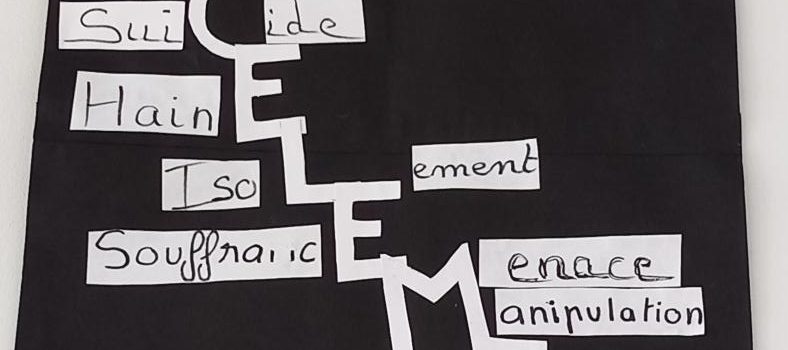 SuiCide
HainE
IsoLement
SouffrancE
Menace
anipulation